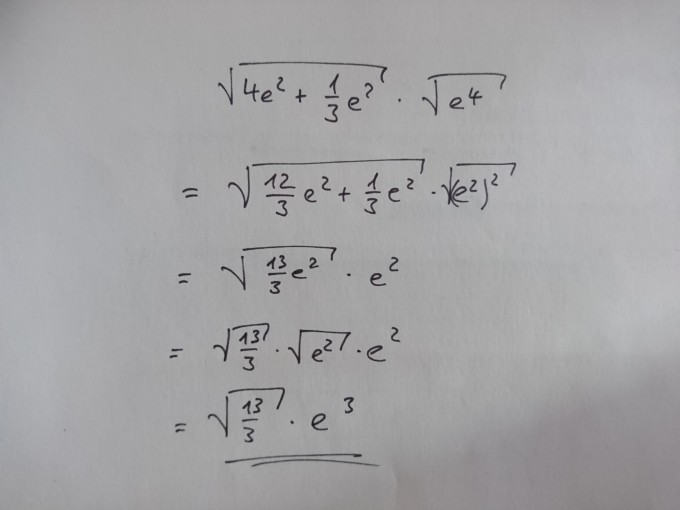 √(4e² + 1/3 e²) · √(e⁴)
= √(12/3 e² + 1/3 e²) · √((e²)²)
= √(13/3 e²) · e²
= √(13/3) · √(e²) · e²
= √(13/3) · e³